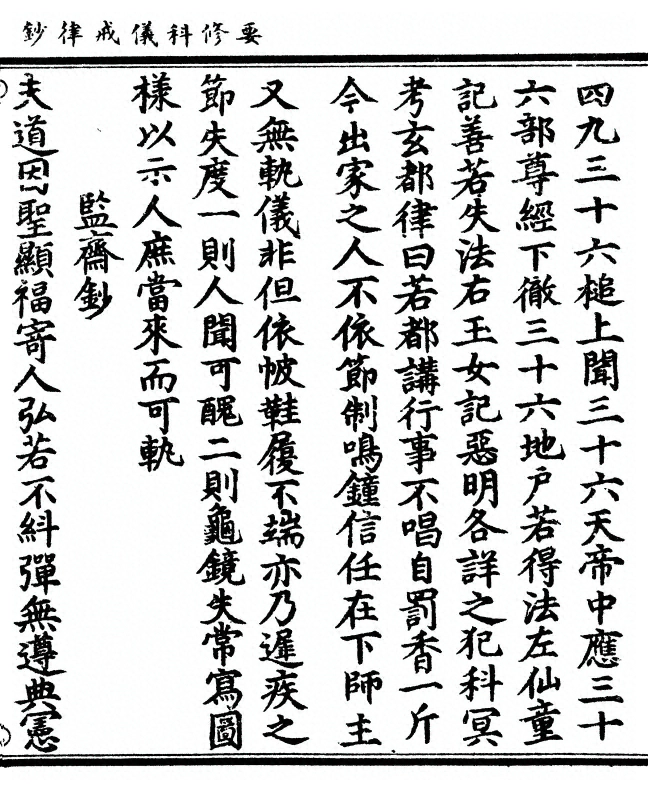 要修科儀戒律鈔
四九三十六槌上聞三十六天帝中應三十
六部尊經下徹三十六地户若得法左仙童
記善若失法右玉女記惡明各詳之犯科冥
考玄都律曰若都講行事不唱自罰香一斤
今出家之人不依節制鳴鐘信任在下師主
又無軌儀非但依帔鞋履不端亦乃遲疾之
節失度一則人聞可醜二則龜鏡失常寫圖
樣以示人庶當來而可軌
監齋鈔
夫道因聖顯福寄人弘若不糾彈無遵典憲